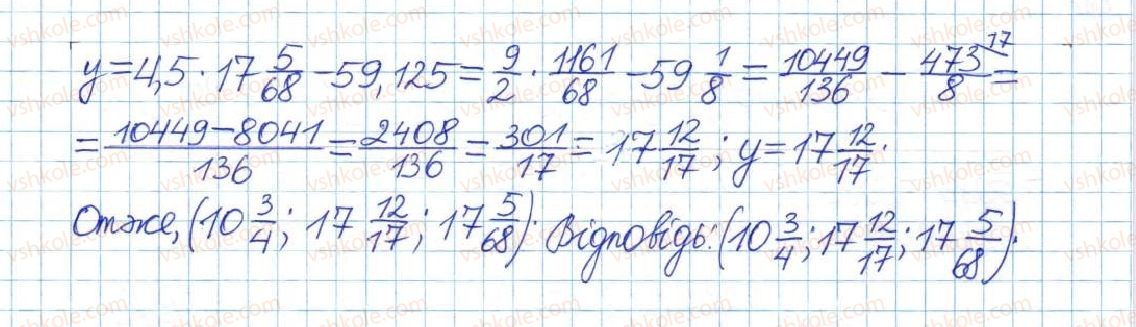 y = 4,5 · 17 5/68 − 59,125 = 9/2 · 1161/68 − 59 1/8 = 10449/136 − 473/8 \17 =
= (10449 − 8041)/136 = 2408/136 = 301/17 = 17 12/17 ; y = 17 12/17 .
Отже, (10 3/4 ; 17 12/17 ; 17 5/68) . Відповідь: (10 3/4 ; 17 12/17 ; 17 5/68) .